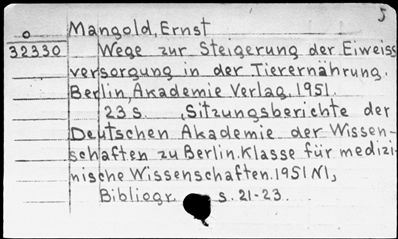 5
o Mangold, Ernst
32330 Wege zur Steigerung der Eiweiss
versorgung in der Tierernährung.
Berlin, Akademie Verlag. 1951.
23 s. (Sitzungsberichte der
Deutschen Akademie der Wissen-
schaften zu Berlin. Klasse für medizi-
nische Wissenschaften. 1951 N1,
Bibliogr. s. 21-23.